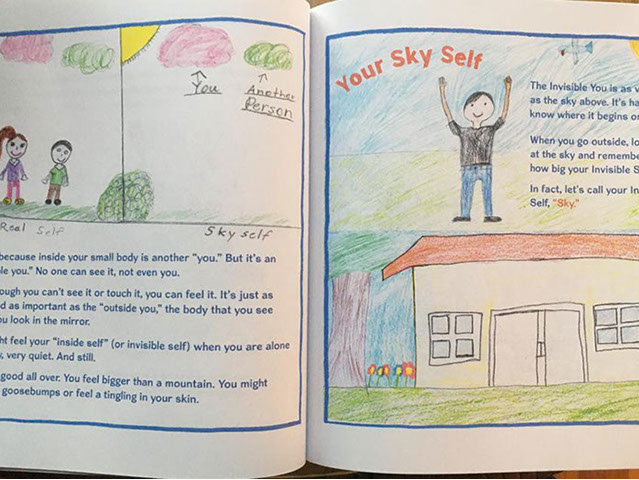 You
Another
Person
Real Self
Sky self
because inside your small body is another “you.” But it’s an
le you.” No one can see it, not even you.
ough you can’t see it or touch it, you can feel it. It’s just as
d as important as the “outside you,” the body that you see
ou look in the mirror.
ht feel your “inside self” (or invisible self) when you are alone
, very quiet. And still.
good all over. You feel bigger than a mountain. You might
goosebumps or feel a tingling in your skin.
Your Sky Self
The Invisible You is as v
as the sky above. It’s ha
know where it begins or
When you go outside, lo
at the sky and remembe
how big your Invisible S
In fact, let’s call your In
Self, “Sky.”